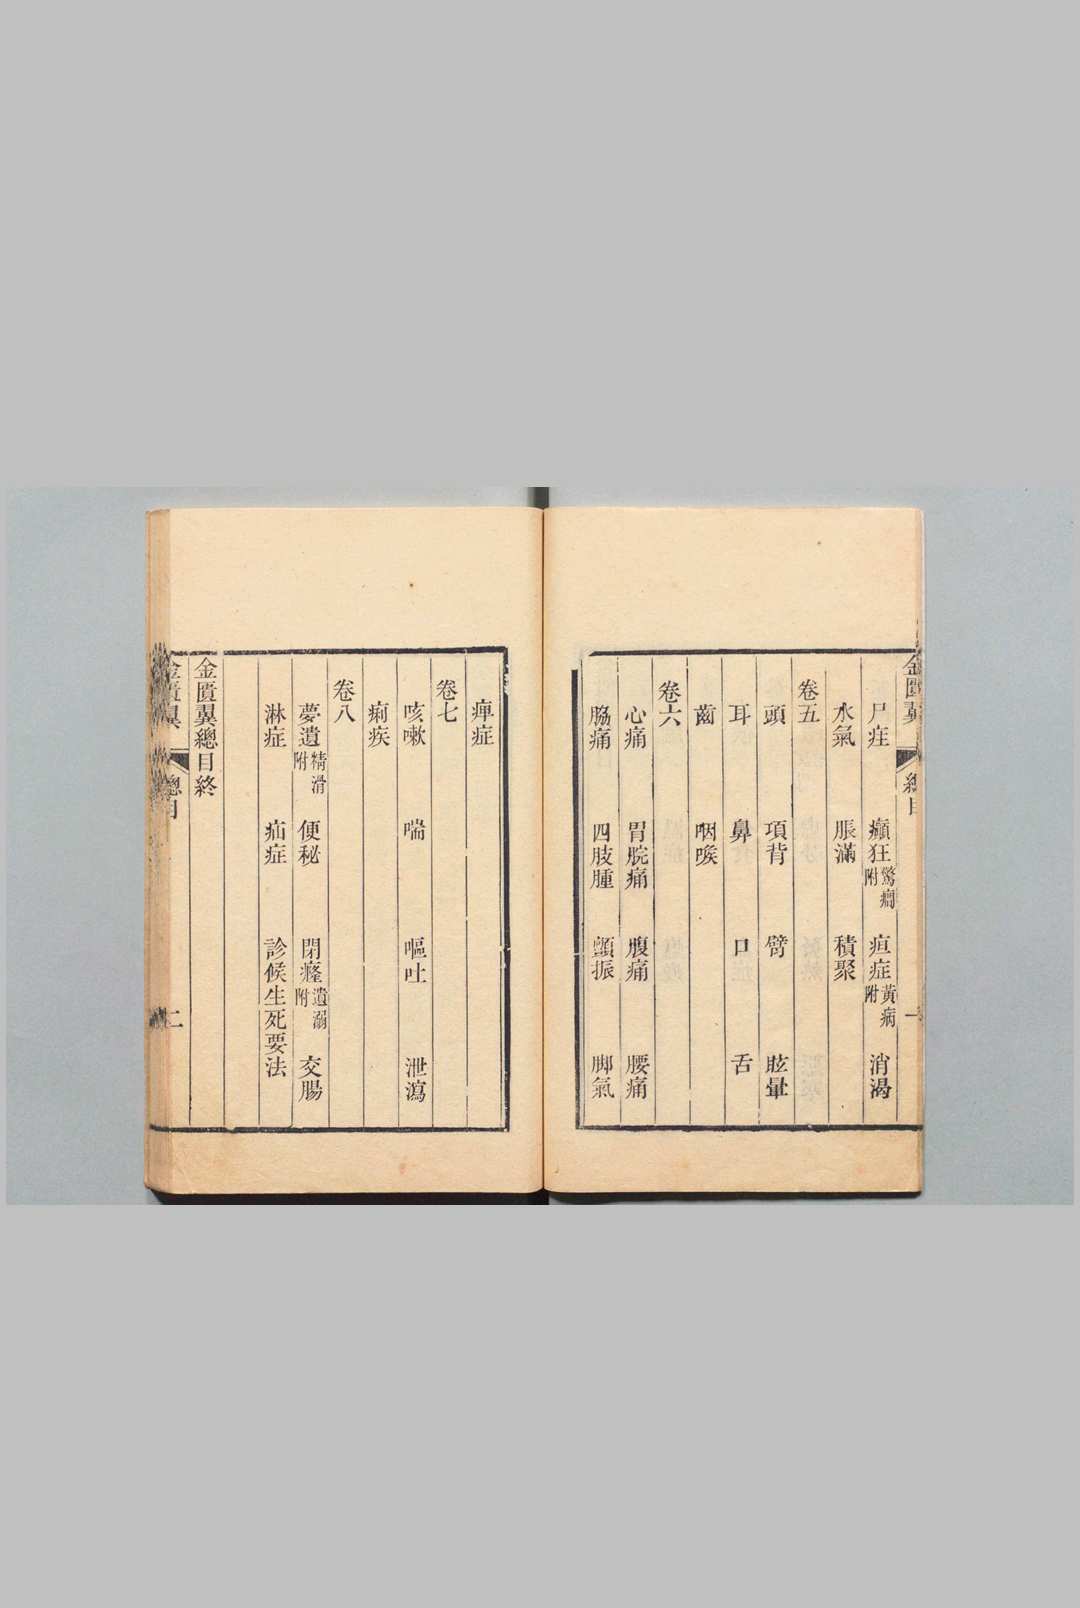 金匱翼 總目 一
尸疰 癲狂驚癎附 疸症黃病附 消渴
水氣 脹滿 積聚
卷五
頭 項背 臂 眩暈
耳 鼻 口 舌
齒 咽喉
卷六
心痛 胃脘痛 腹痛 腰痛
脇痛 四肢腫 顫振 脚氣
痺症
卷七
咳嗽 喘 嘔吐 泄瀉
痢疾
卷八
夢遺精滑附 便秘 閉癃遺溺附 交腸
淋症 疝症 診候生死要法
金匱翼總目終
金匱翼 總目 二